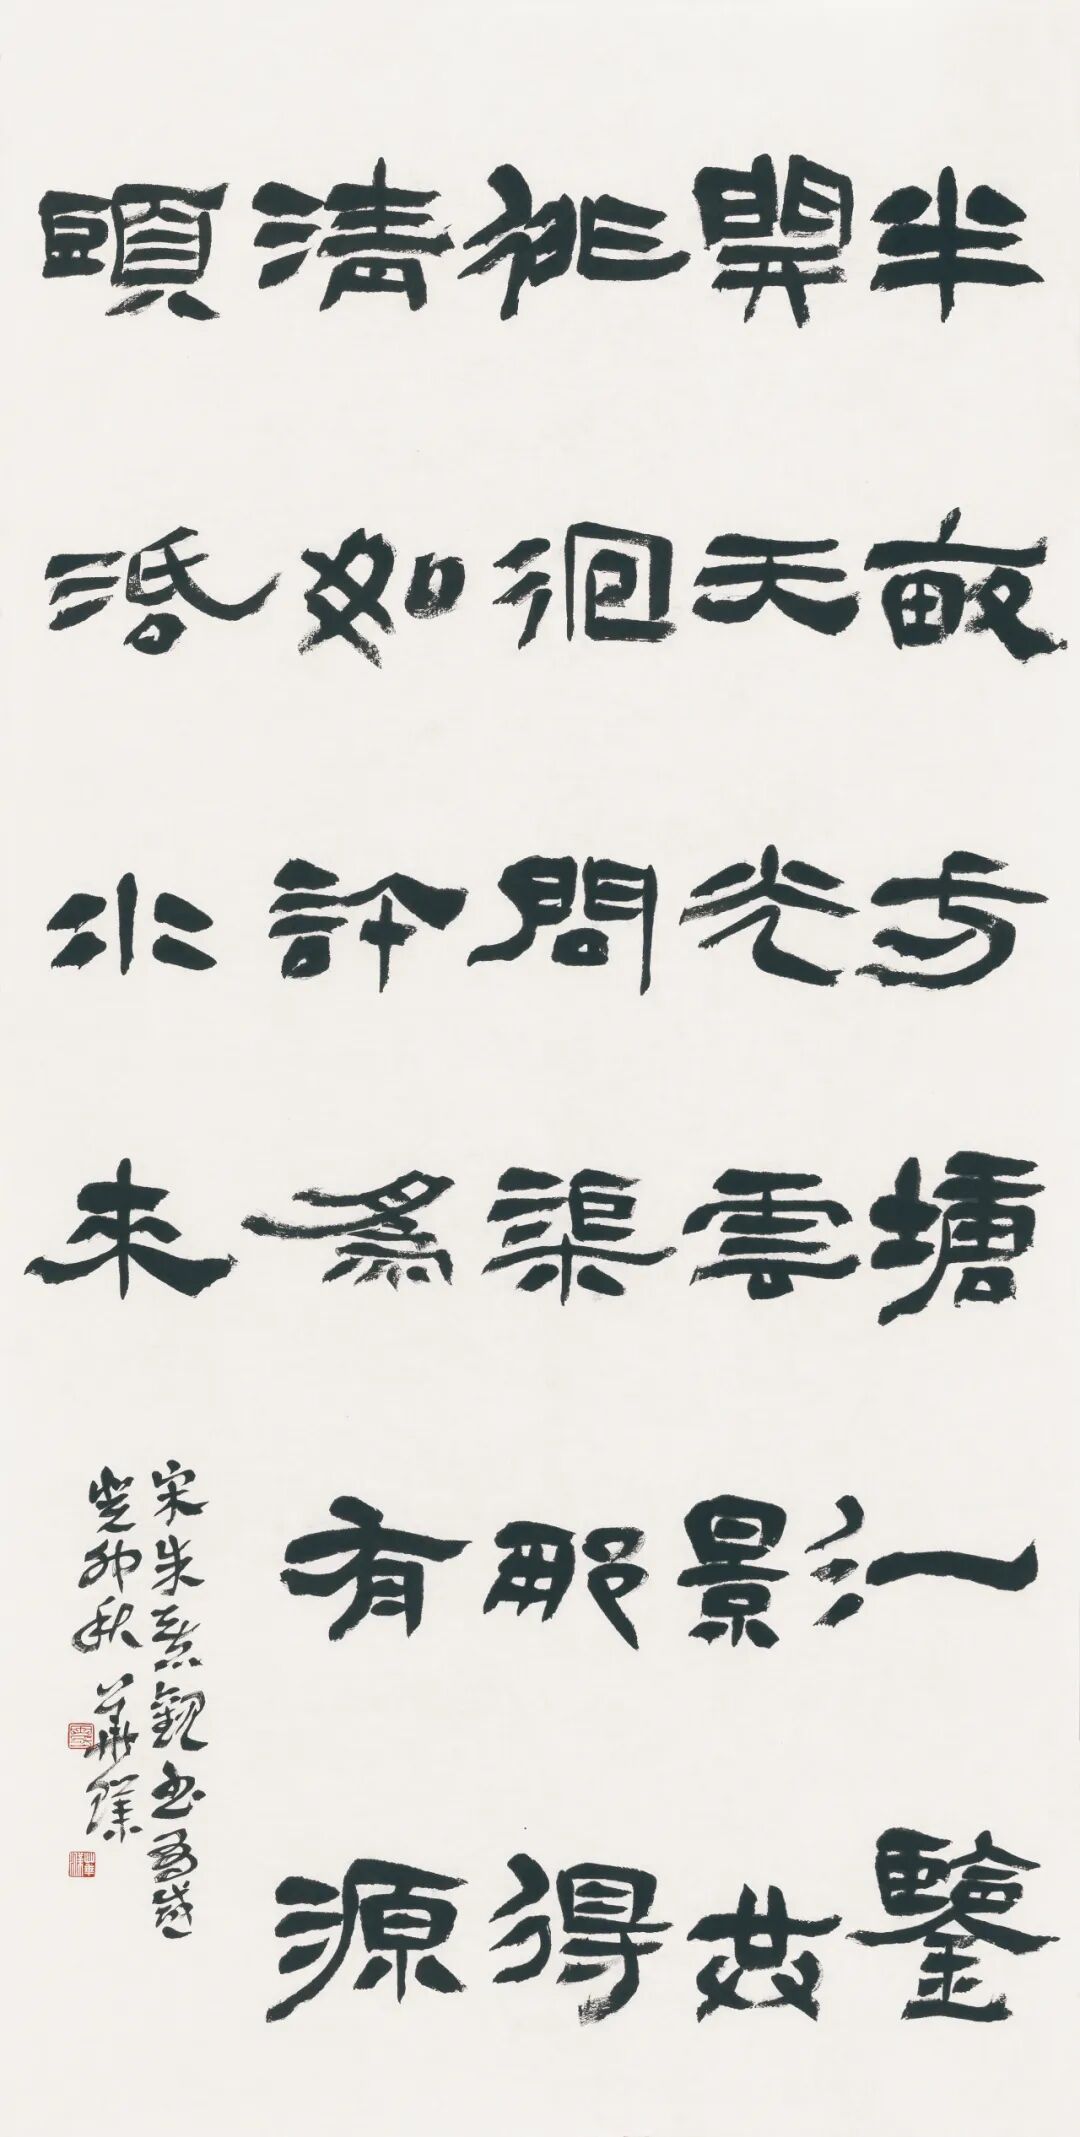 半畝方塘一鑒
開天光雲影共
徘徊問渠那得
清如許爲有源
頭活水來
宋朱熹觀書有感
癸卯秋華